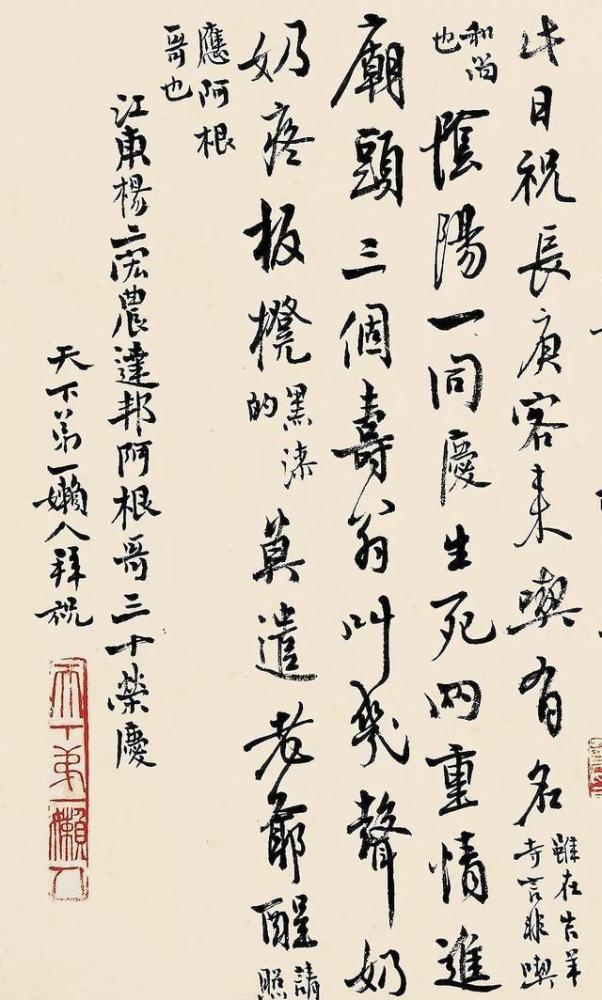 此日祝長庚客来喫有名
雖在吉羊
寺言非喫
和尚
也
陰陽一同慶生死两重情進
廟頭三個壽翁叫幾聲奶
奶疼板櫈
黑漆
的
莫遣老爺醒
請
照
應阿根
哥也
江東楊二宏農達邦阿根哥三十榮慶
天下弟一嬾人拜祝
天下弟一嬾人